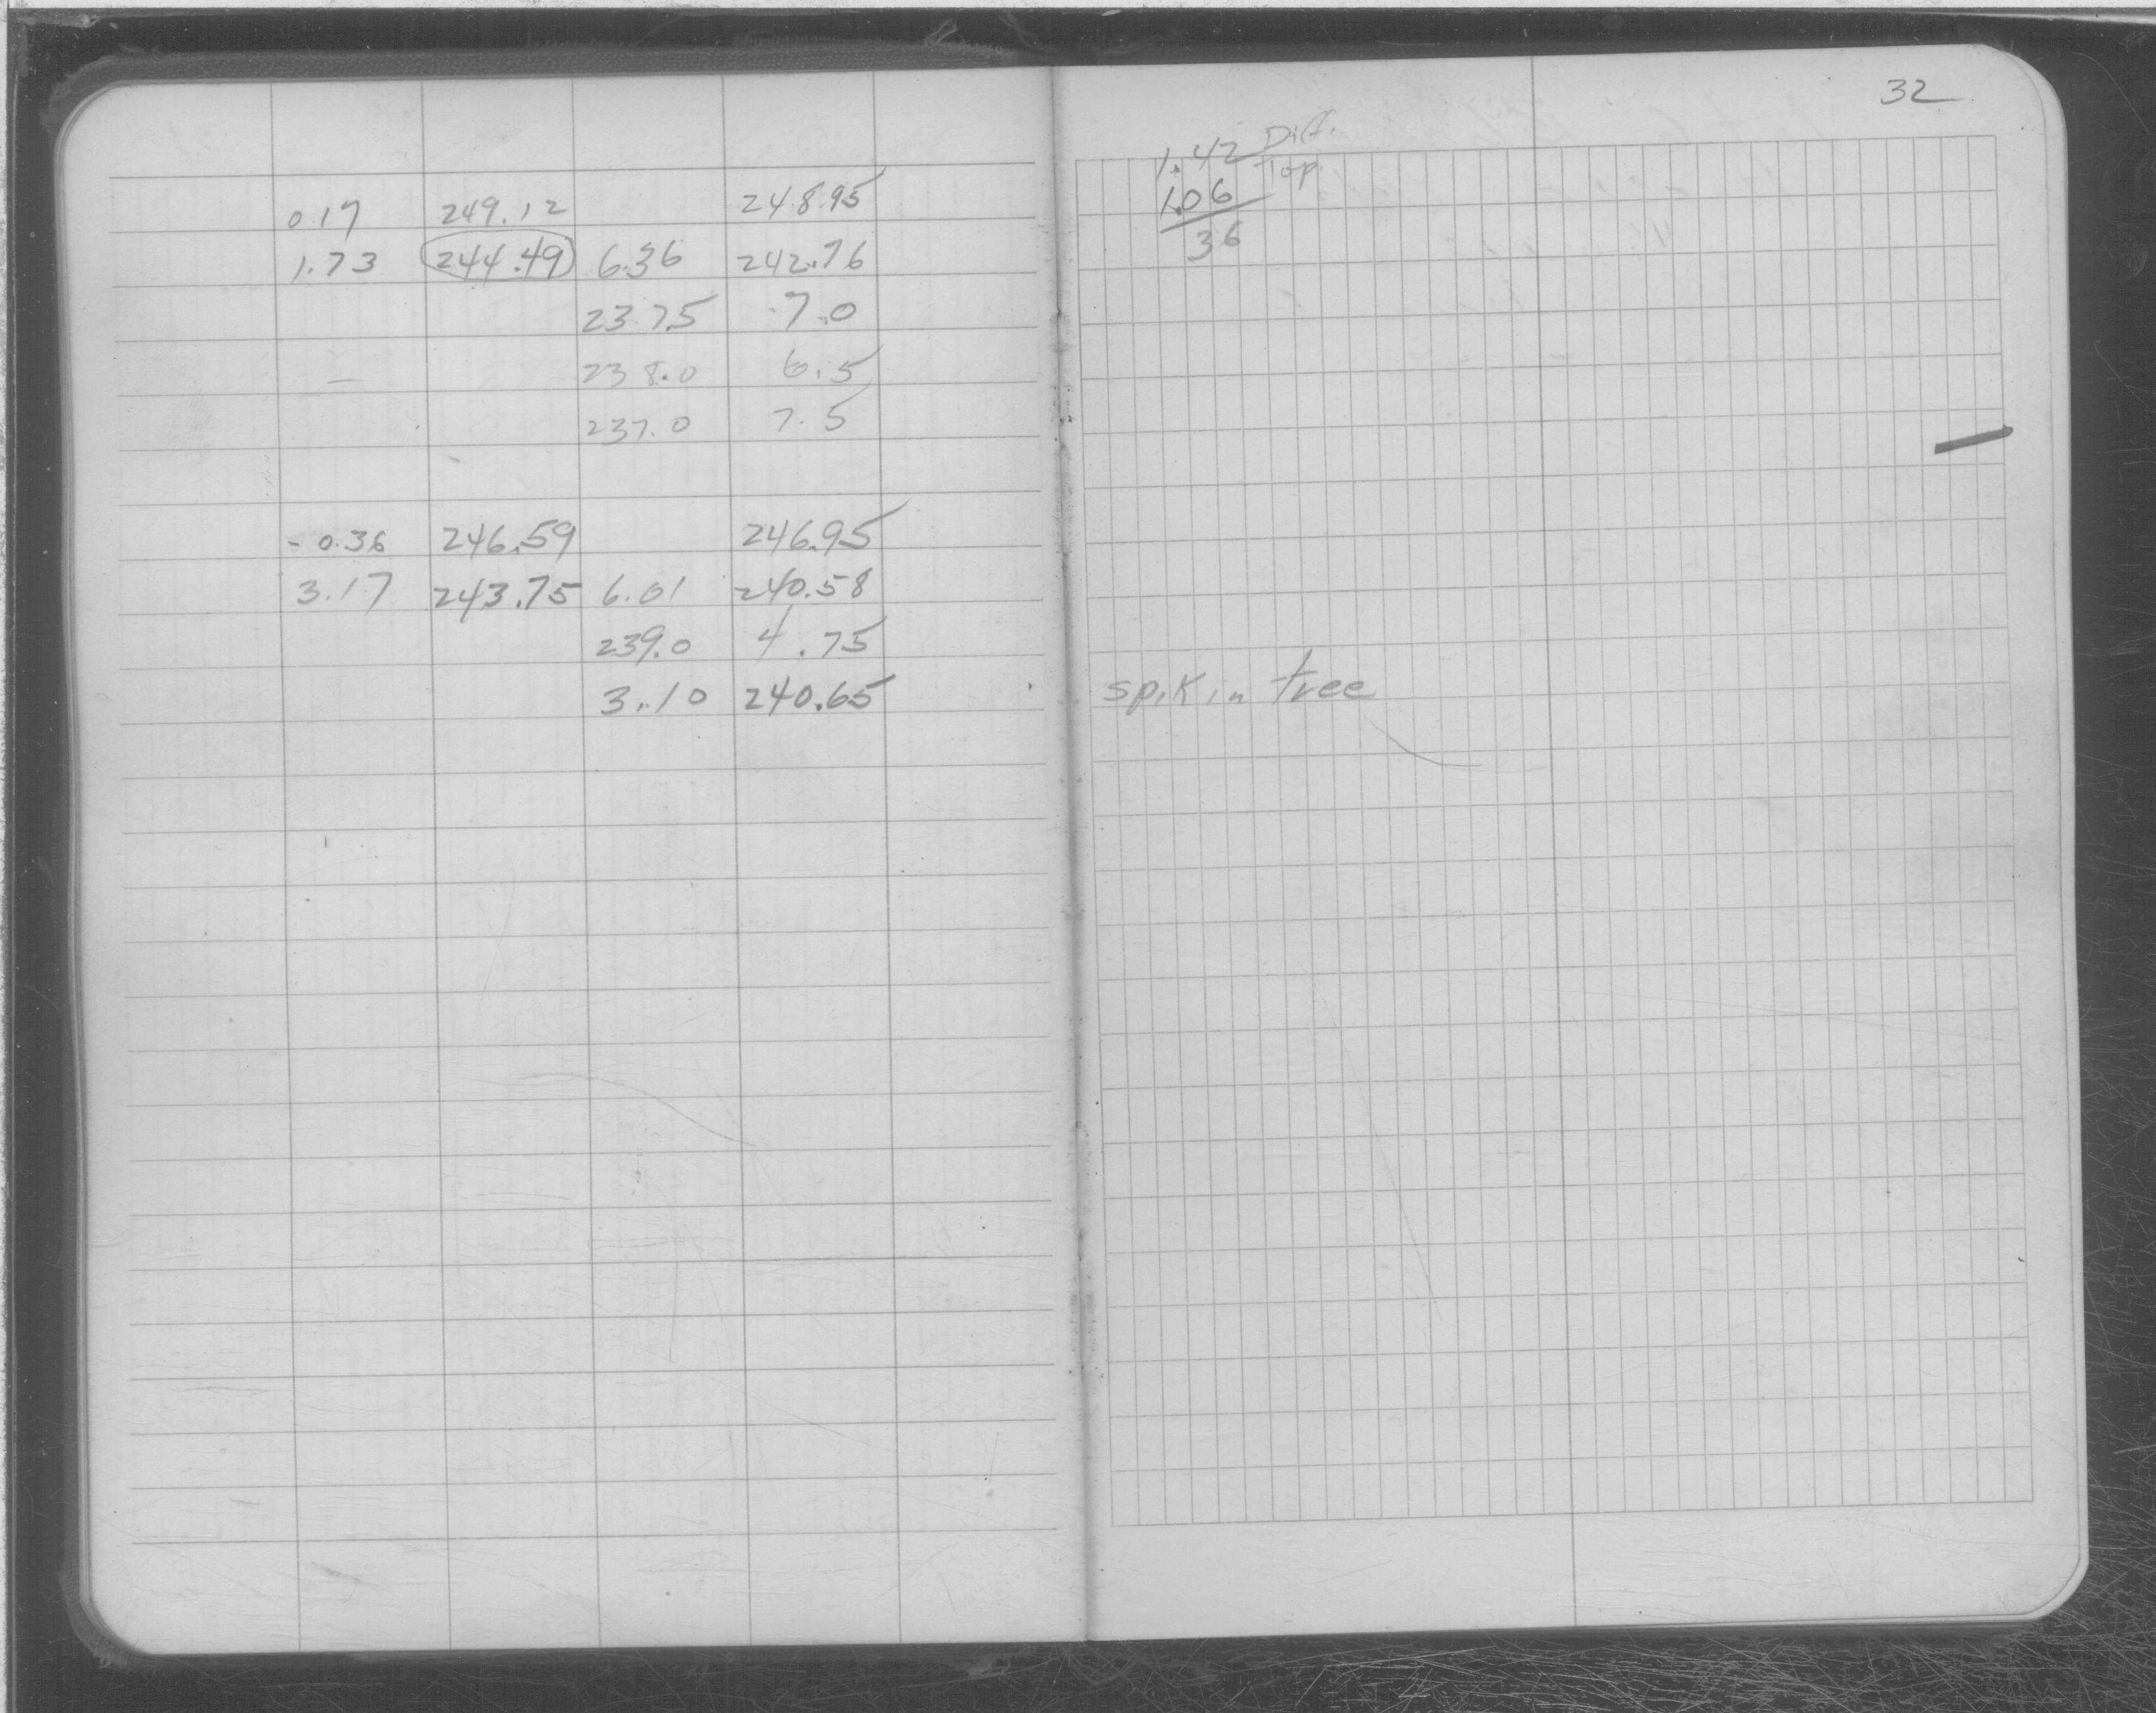 0 17 249.12 248.95
1.73 244.49 6.36 242.76
23 7.5 7.0
238.0 6.5
237.0 7.5
-0.36 246.59 246.95
3.17 243.75 6.01 240.58
239.0 4.75
3.10 240.65
32
1.42 Diff.
Top.
1.06
36
spik in tree